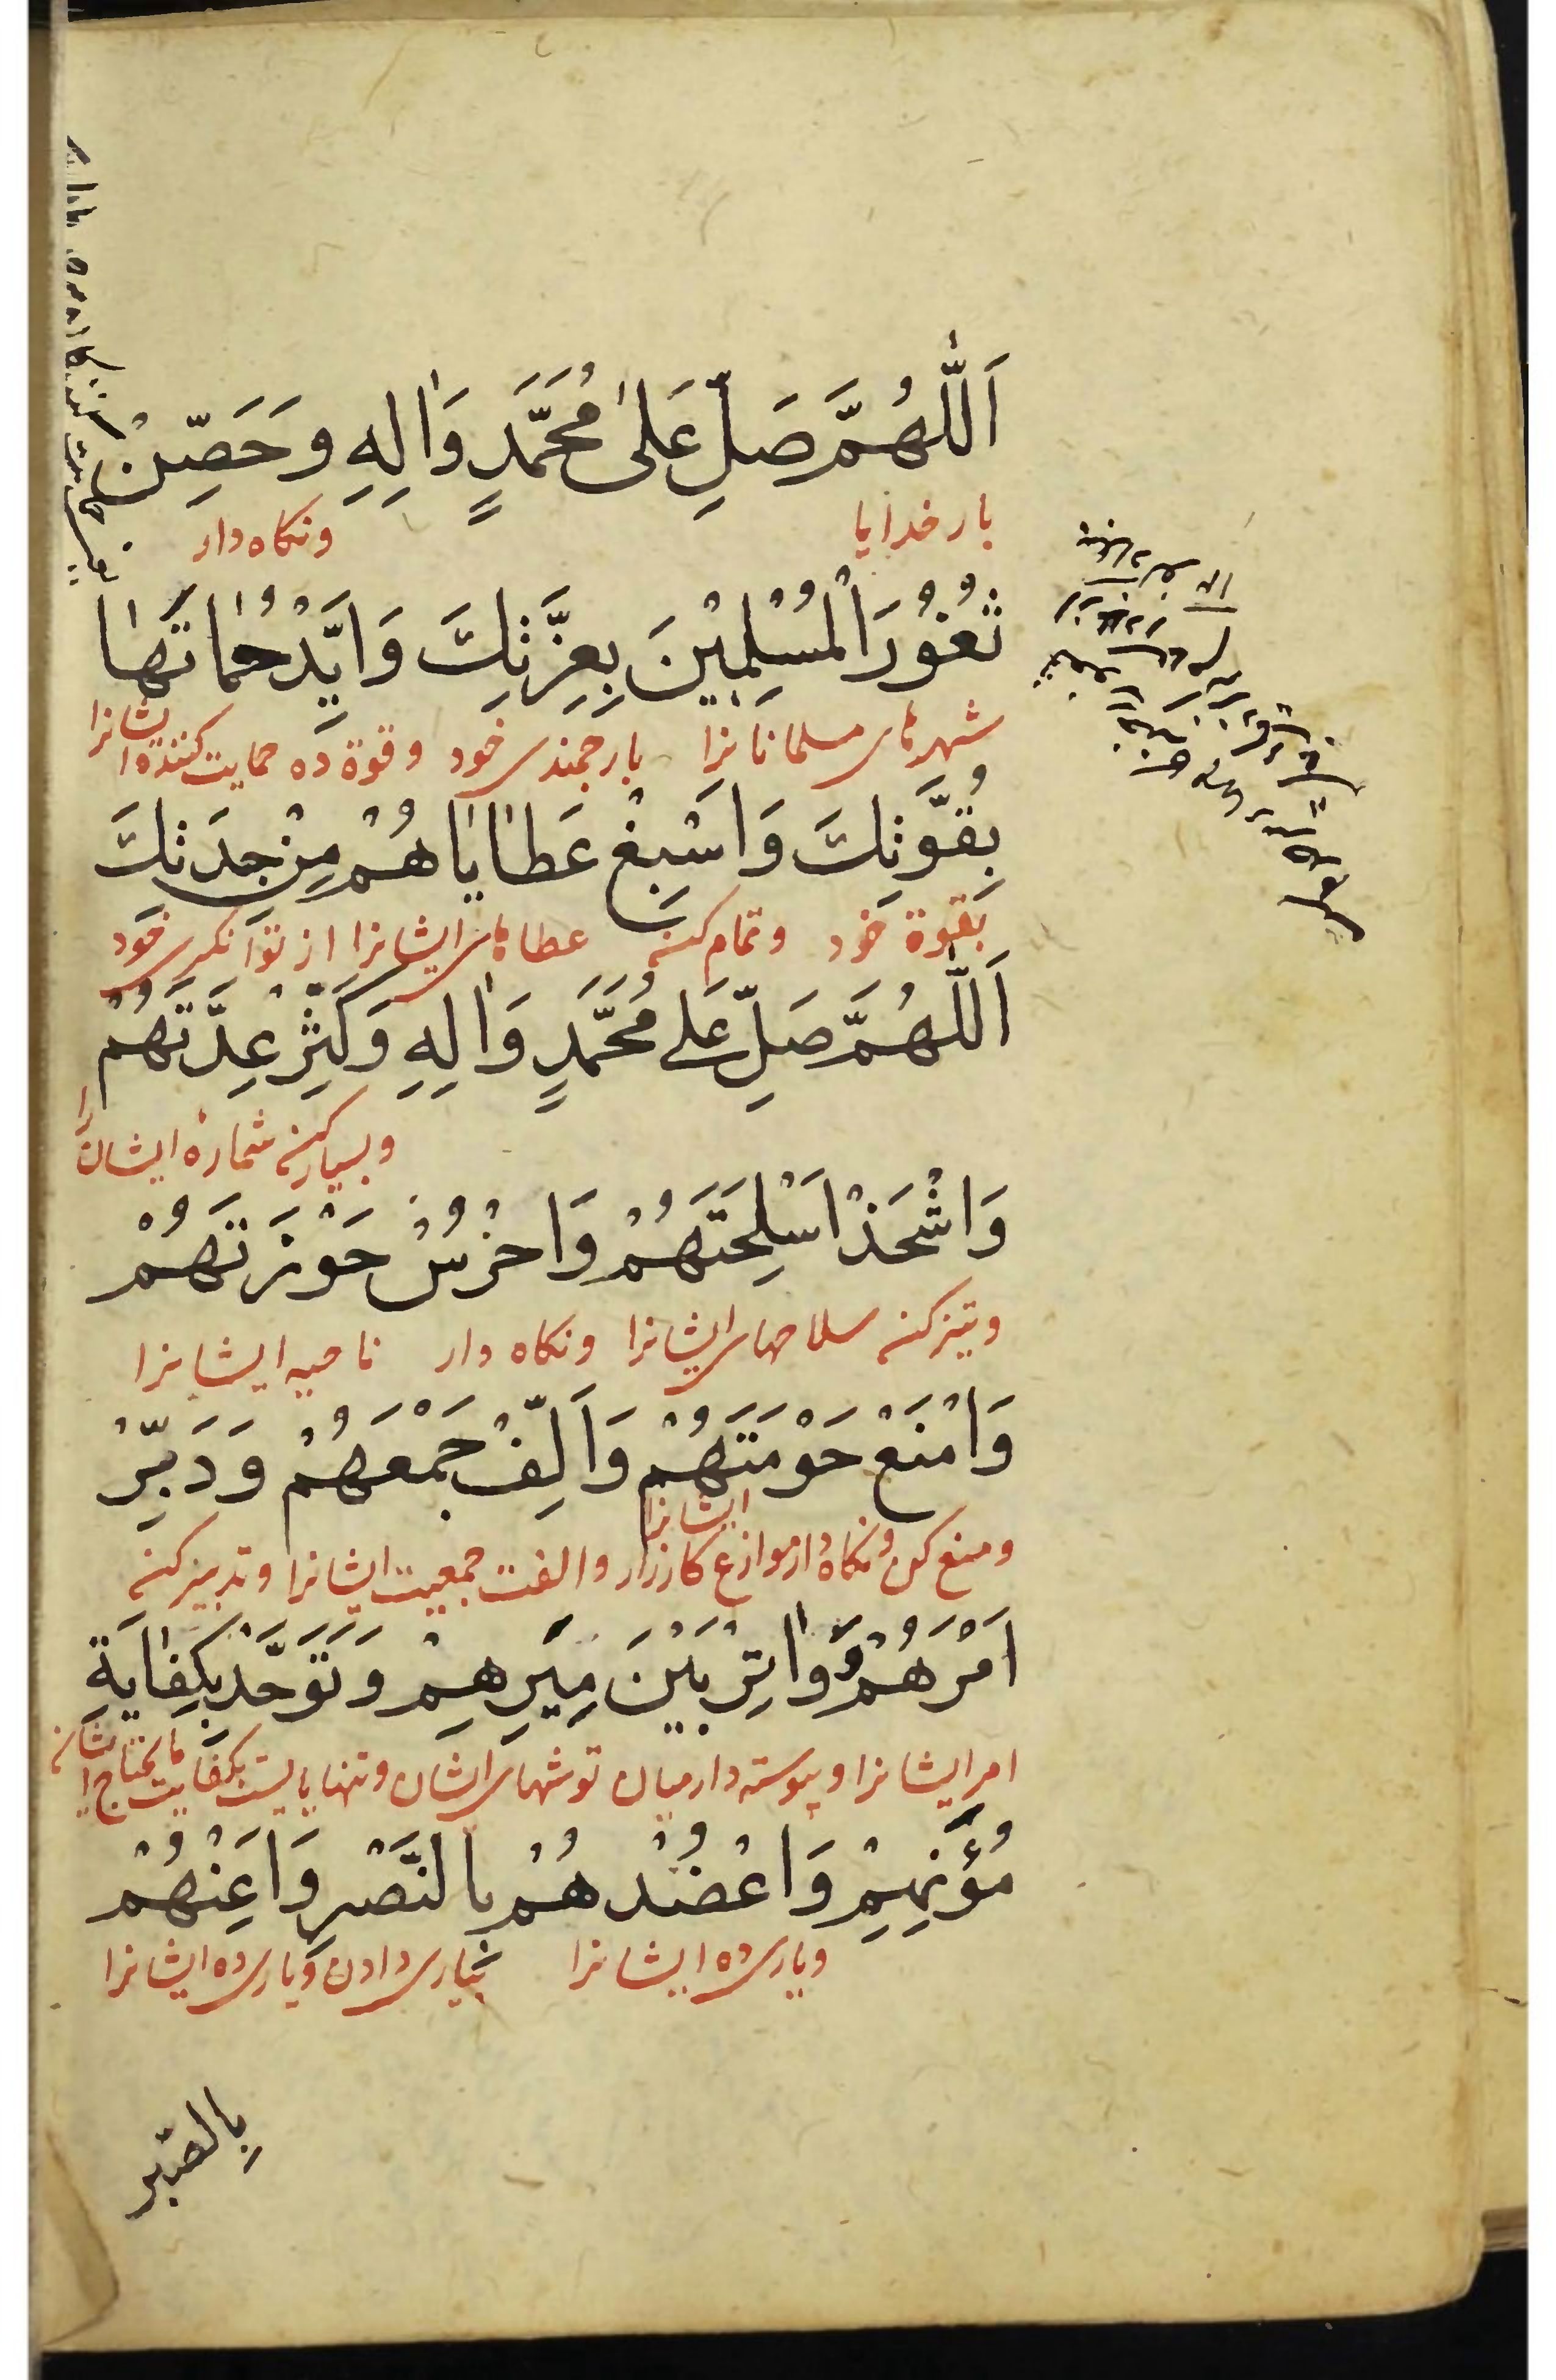 اَللّٰهُمَّ صَلِّ عَلىٰ مُحَمَّدٍ وَاٰلِهِ وَحَصِّنْ
بار خدایا ونكاه دار
ثُغُورَ الْمُسْلِمِيْنَ بِعِزَّتِكَ وَاَيِّدْ حُمَاتَهَا
شهرهای مسلمانانرا بارجمندی خود وقوة ده حمایت کنندهٔ ایشانرا
بِقُوَّتِكَ وَاَسْبِغْ عَطَايَاهُمْ مِنْ جِدَتِكَ
بقوة خود وتمام كن عطاهای ایشانرا از توانکری خود
اَللّٰهُمَّ صَلِّ عَلے مُحَمَّدٍ وَاٰلِهِ وَكَثِّرْ عِدَّتَهُمْ
وبسیار کن شمارهٔ ایشان را
وَاشْحَذْ اَسْلِحَتَهُمْ وَاحْرُسْ حَوْزَتَهُمْ
وتیز کن سلاحهای ایشانرا ونکاه دار ناحیه ایشانرا
وَامْنَعْ حَوْمَتَهُمْ وَاَلِّفْ جَمْعَهُمْ وَدَبِّرْ
ومنع کن ونکاه دار موازع کارزار ایشانرا والفت جمعیت ایشانرا وتدبیر کن
اَمْرَهُمْ وَوَاتِرْ بَيْنَ مِيَرِهِمْ وَتَوَحَّدْ بِكِفَايَةِ
امر ایشانرا وپیوسته دار میان توشهای ایشان وتنها بایست بکفایت مایحتاج ایشان
مُؤَنِهِمْ وَاعْضُدْهُمْ بِالنَّصْرِ وَاَعِنْهُمْ
ویاری ده ایشانرا بیاری دادن ویاری ده ایشانرا
بِالصَّبْرِ